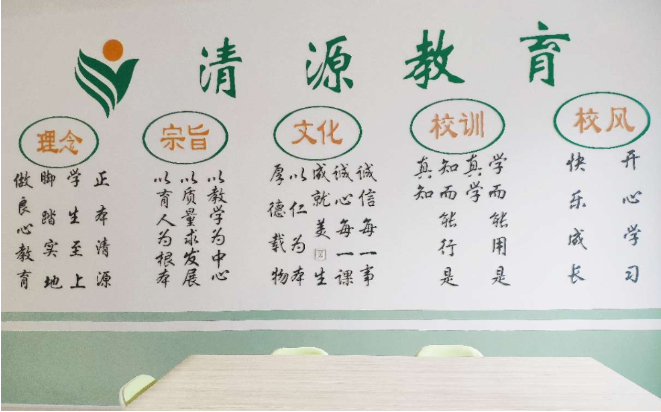 清源教育
理念
正本清源
学生至上
脚踏实地
做良心教育
宗旨
以教学为中心
以质量求发展
以育人为根本
文化
诚信每一事
诚心每一课
成就美生
以仁为本
厚德载物
校训
学而能用是
真学
知而能行是
真知
校风
开心学习
快乐成长